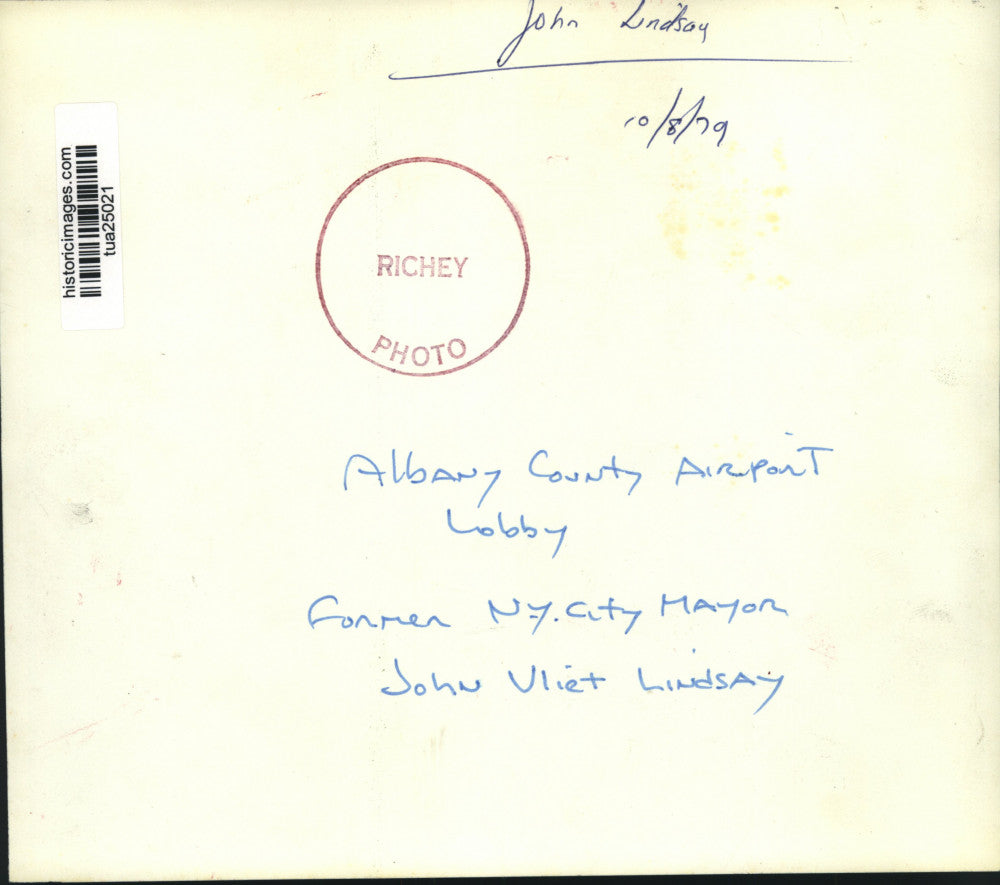 John Lindsay
10/8/79
historicimages.com
tua25021
RICHEY
PHOTO
Albany County Airport
Lobby
Former N.Y. City Mayor
John Vliet Lindsay